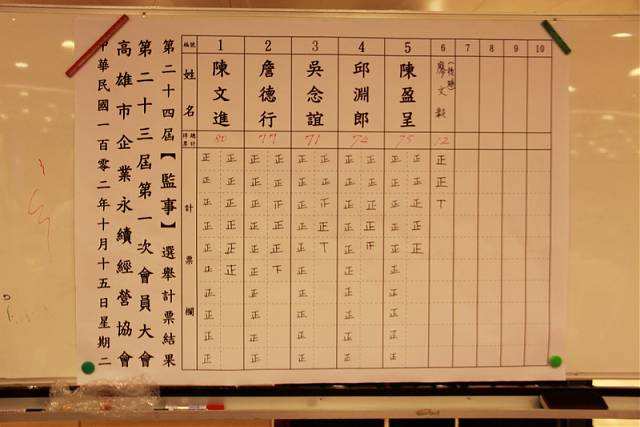 中華民國一百零二年十月十五日星期二
高雄市企業永續經營協會
第二十三屆第一次會員大會
第二十四屆【監事】選舉計票結果
編號 1 2 3 4 5 6 7 8 9 10
姓名 陳文進 詹德行 吳念誼 邱淵郎 陳盈呈 廖文毅
(後補)
得票總計 80 77 71 74 75 12
計票欄
正 正 正 正 正 正 正 正 正 正 正
正 正 正 正 正 正 正 正 正 正 正
正 正 正 正 正 正 正 正 正 正 丅
正 正 正 正 正 正 正 正 正 正
正 正 正 正 正 丅 正 正 正
正 正 正 正 正 正
正 正 正 正 正
正 正 正 正 正
正 正 正 正 正
正 正 正 正 正